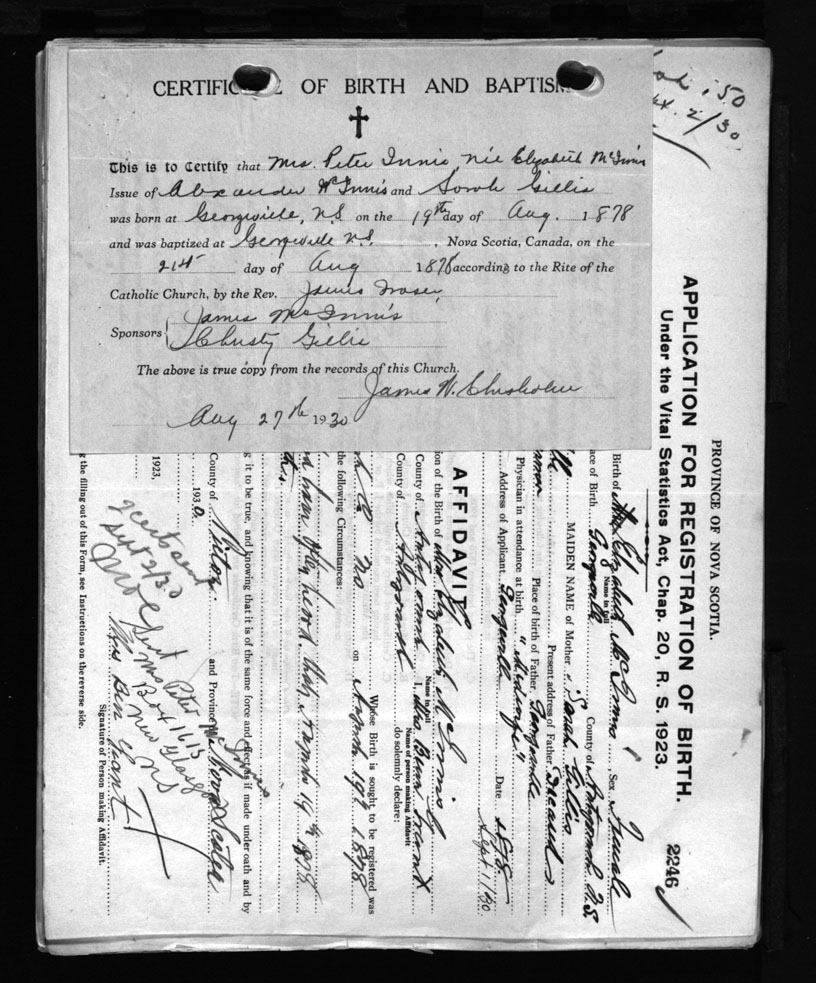 CERTIFIC E OF BIRTH AND BAPTISM
This is to Certify that Mrs. Peter Innis, nee Elizabeth McInnis
Issue of Alexander McInnis and Sarah Gillis
was born at Georgeville, N.S. on the 19th day of Aug. 1878
and was baptized at Georgeville N.S. , Nova Scotia, Canada, on the
21st day of Aug 1878 according to the Rite of the
Catholic Church, by the Rev. James Fraser
Sponsors James McInnis
Christy Gillis
The above is true copy from the records of this Church.
James W. Chisholm
Aug 27th 1930
.50
2/30
PROVINCE OF NOVA SCOTIA.
APPLICATION FOR REGISTRATION OF BIRTH.
Under the Vital Statistics Act, Chap. 20, R. S. 1923.
2246
Birth of Elizabeth McInnis Sex, Female
Name in full
ace of Birth Georgeville County of Antigonish N.S.
MAIDEN NAME of Mother Sarah Gillis
Present address of Father
Place of birth of Father, Georgeville
Physician in attendance at birth, "Midwife"
Address of Applicant Georgeville Date Sept 1/30
AFFIDAVIT
Name in full
ion of the Birth of Elizabeth McInnis
County of Antigonish I, Mrs Benn Grant
Name of person making Affidavit
County of Antigonish do solemnly declare:
Whose Birth is sought to be registered was
on August 19th 1878
the following Circumstances:
August 19th 1878
g it to be true, and knowing that it is of the same force and effect as if made under oath and by
County of Pictou and Province of Nova Scotia
1930.
1923,
Sept 2/30
Mrs Peter Innis
Box 1615
New Glasgow
NS
Mrs Ben Grant
Signature of Person making Affidavit.
g the filling out of this Form, see Instructions on the reverse side.